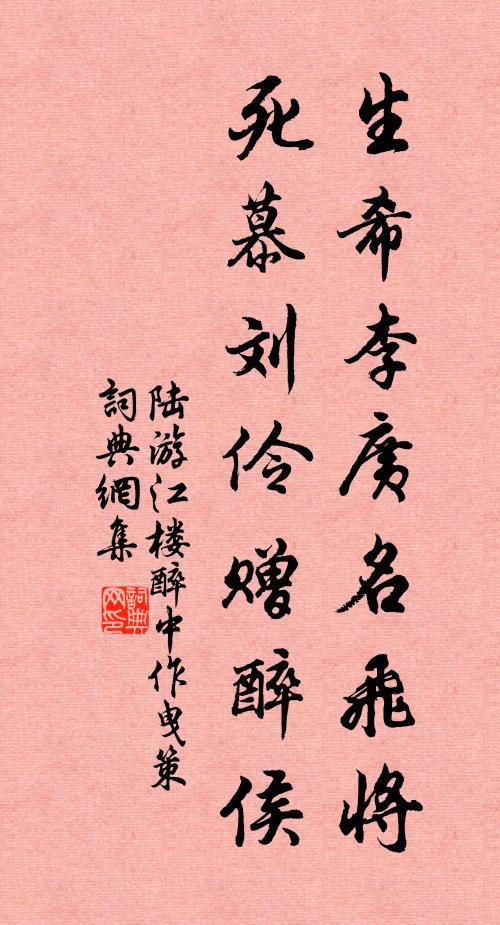 生希李廣名飛將
死慕刘伶赠醉侯
陆游江楼醉中作曳策
詞典網集
詞典网印